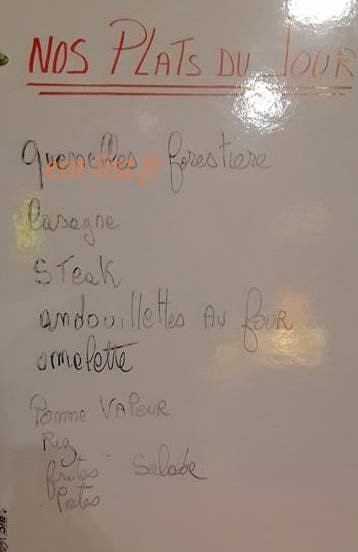 NOS PLATS DU JOUR
quenelles forestiere
eat-list.fr
lasagne
STEAK
andouillettes AU FOUR
omelette
Pomme VAPEUR
Riz
frites - Salade
Pates